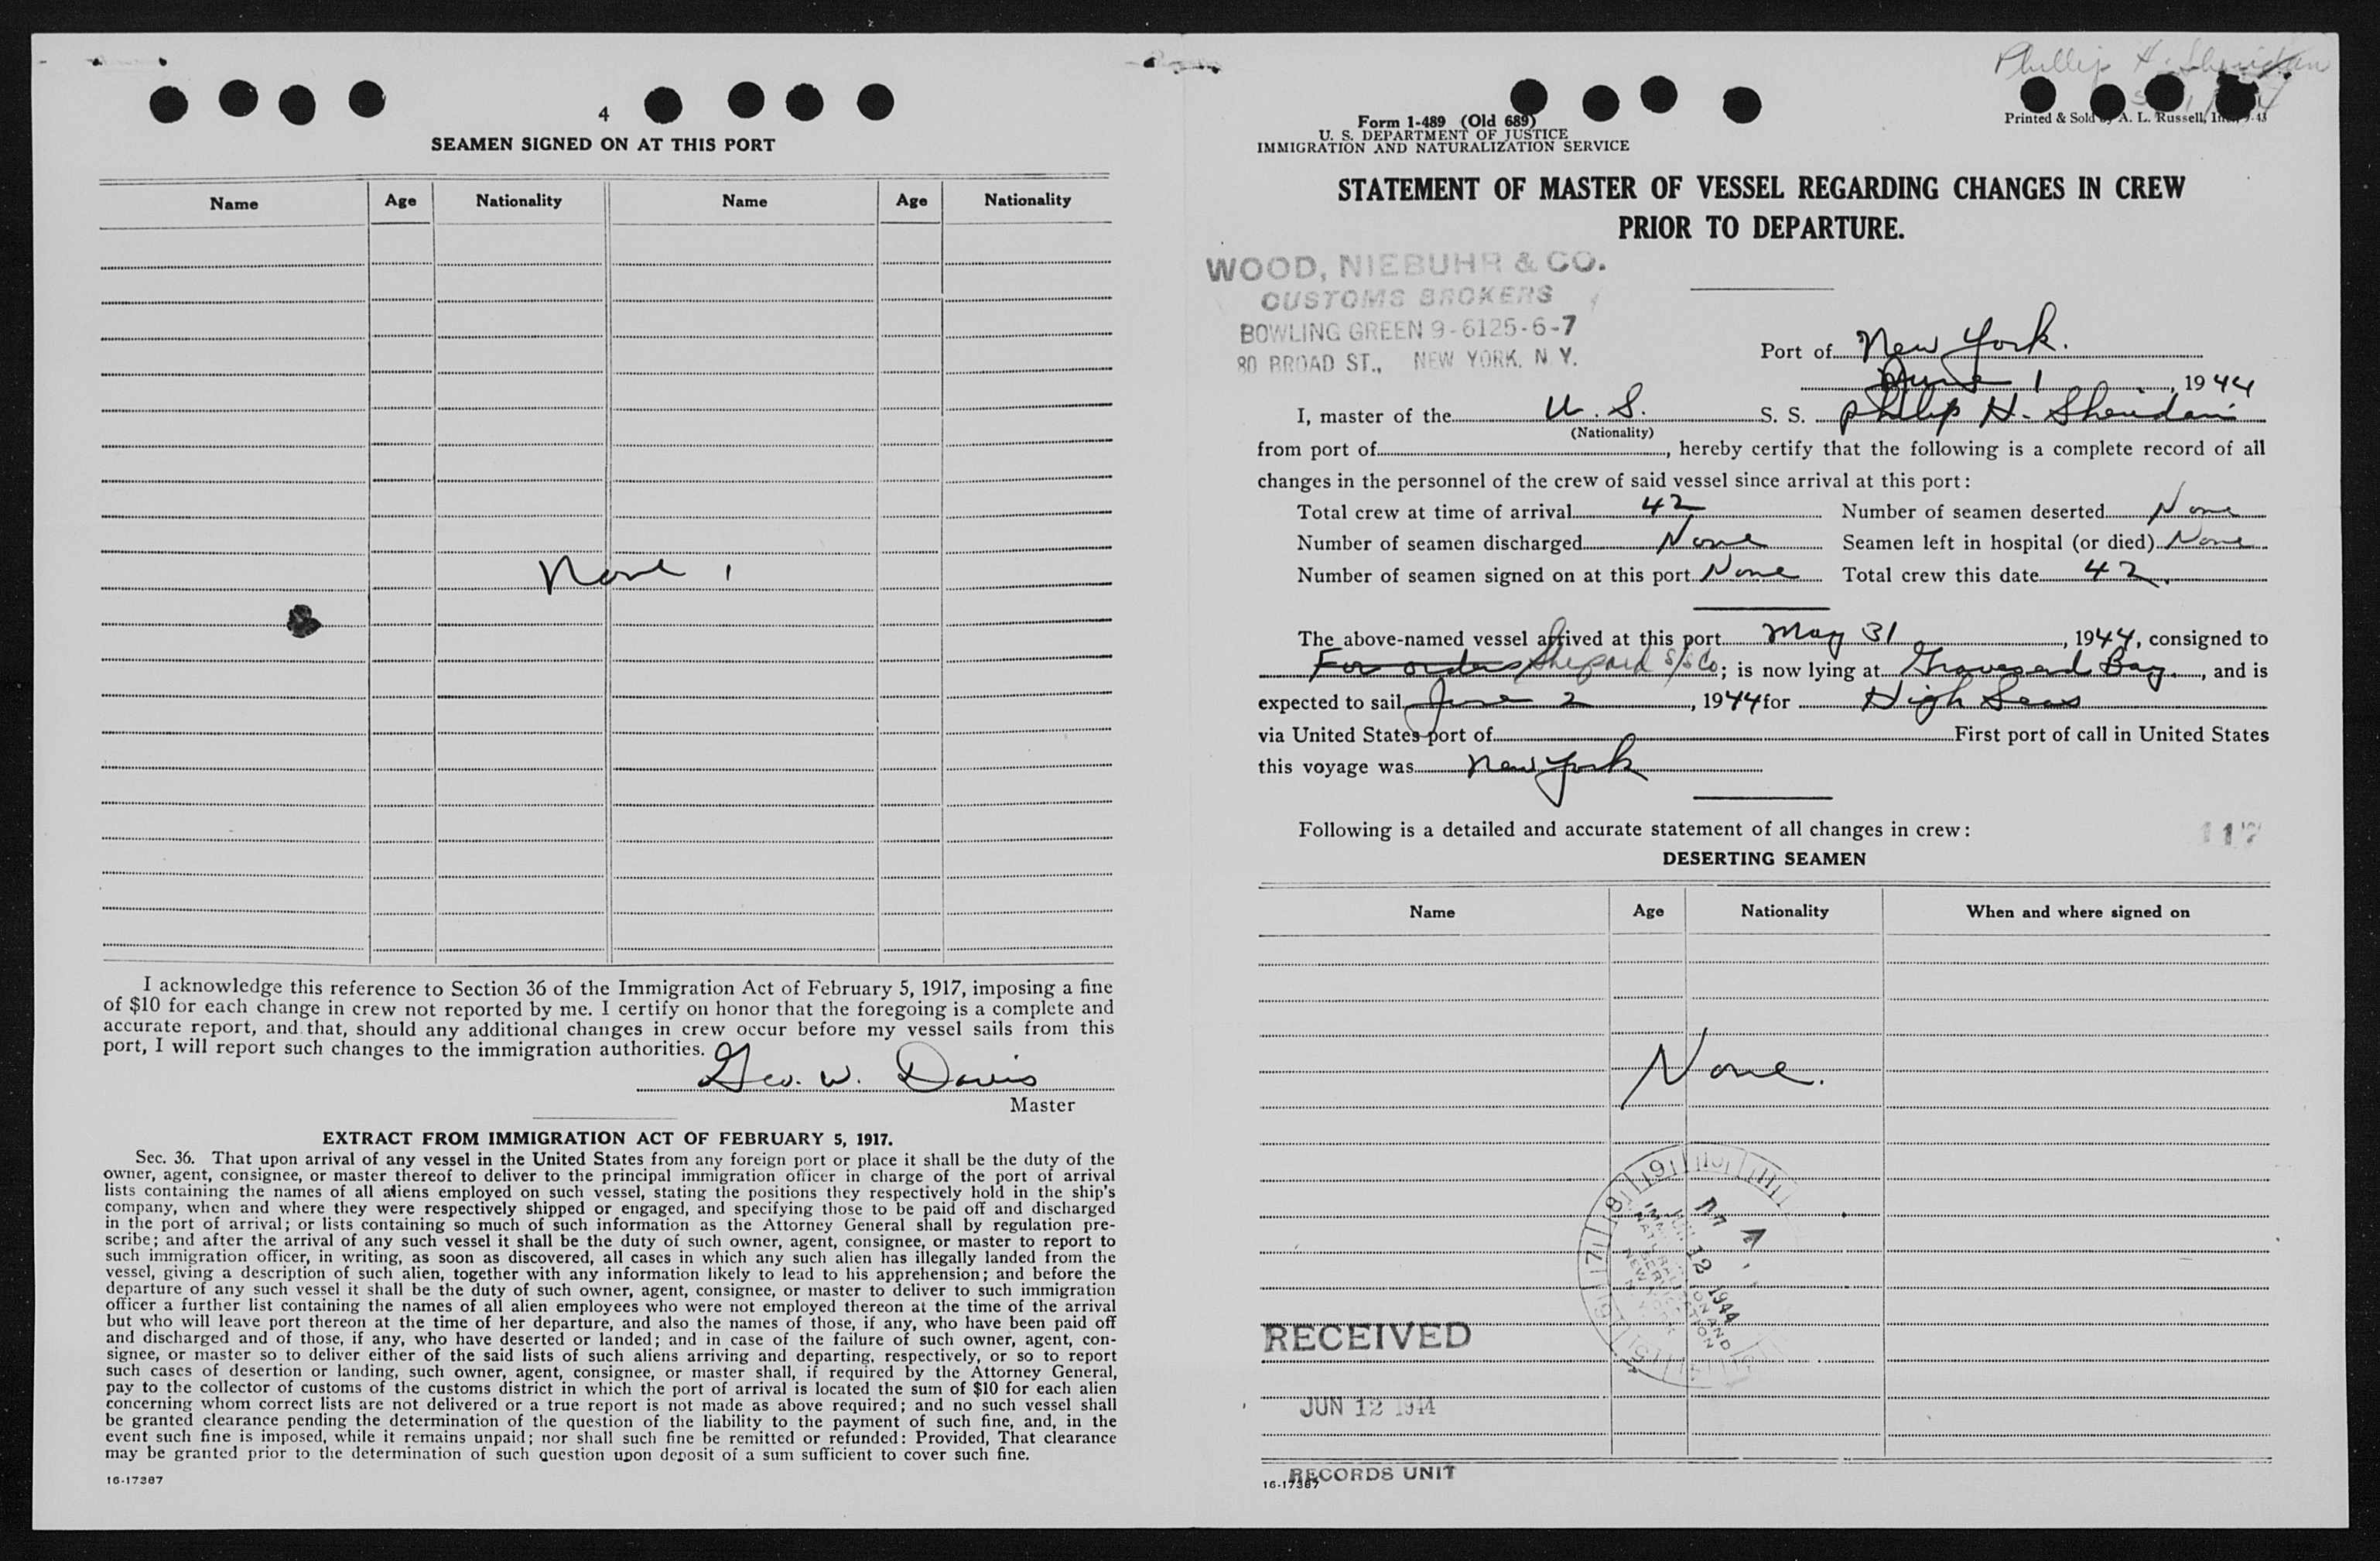 4
SEAMEN SIGNED ON AT THIS PORT
Name Age Nationality Name Age Nationality
None
I acknowledge this reference to Section 36 of the Immigration Act of February 5, 1917, imposing a fine
of $10 for each change in crew not reported by me. I certify on honor that the foregoing is a complete and
accurate report, and that, should any additional changes in crew occur before my vessel sails from this
port, I will report such changes to the immigration authorities.
Geo. W. Davis
Master
EXTRACT FROM IMMIGRATION ACT OF FEBRUARY 5, 1917.
Sec. 36. That upon arrival of any vessel in the United States from any foreign port or place it shall be the duty of the
owner, agent, consignee, or master thereof to deliver to the principal immigration officer in charge of the port of arrival
lists containing the names of all aliens employed on such vessel, stating the positions they respectively hold in the ship's
company, when and where they were respectively shipped or engaged, and specifying those to be paid off and discharged
in the port of arrival; or lists containing so much of such information as the Attorney General shall by regulation pre-
scribe; and after the arrival of any such vessel it shall be the duty of such owner, agent, consignee, or master to report to
such immigration officer, in writing, as soon as discovered, all cases in which any such alien has illegally landed from the
vessel, giving a description of such alien, together with any information likely to lead to his apprehension; and before the
departure of any such vessel it shall be the duty of such owner, agent, consignee, or master to deliver to such immigration
officer a further list containing the names of all alien employees who were not employed thereon at the time of the arrival
but who will leave port thereon at the time of her departure, and also the names of those, if any, who have been paid off
and discharged and of those, if any, who have deserted or landed; and in case of the failure of such owner, agent, con-
signee, or master so to deliver either of the said lists of such aliens arriving and departing, respectively, or so to report
such cases of desertion or landing, such owner, agent, consignee, or master shall, if required by the Attorney General,
pay to the collector of customs of the customs district in which the port of arrival is located the sum of $10 for each alien
concerning whom correct lists are not delivered or a true report is not made as above required; and no such vessel shall
be granted clearance pending the determination of the question of the liability to the payment of such fine, and, in the
event such fine is imposed, while it remains unpaid; nor shall such fine be remitted or refunded: Provided, That clearance
may be granted prior to the determination of such question upon deposit of a sum sufficient to cover such fine.
16-17367
Phillip H. Sheridan
Form 1-489 (Old 689)
U. S. DEPARTMENT OF JUSTICE
IMMIGRATION AND NATURALIZATION SERVICE
Printed & Sold by A. L. Russell, Inc.
STATEMENT OF MASTER OF VESSEL REGARDING CHANGES IN CREW
PRIOR TO DEPARTURE.
WOOD, NIEBUHR & CO.
CUSTOMS BROKERS
BOWLING GREEN 9-6125-6-7
80 BROAD ST., NEW YORK, N. Y.
Port of New York.
June 1, 1944
I, master of the U. S. S. S. Philip H. Sheridan
(Nationality)
from port of, hereby certify that the following is a complete record of all
changes in the personnel of the crew of said vessel since arrival at this port:
Total crew at time of arrival 42 Number of seamen deserted None
Number of seamen discharged None Seamen left in hospital (or died) None
Number of seamen signed on at this port None Total crew this date 42.
The above-named vessel arrived at this port May 31, 1944, consigned to
For orders Shepard S/S Co; is now lying at Gravesend Bay., and is
expected to sail June 2, 1944 for High Seas
via United States port of First port of call in United States
this voyage was New York
Following is a detailed and accurate statement of all changes in crew:
117
DESERTING SEAMEN
Name Age Nationality When and where signed on
None.
9 10 11
8 7 6 5
JUN 12 1944
IMMIGRATION AND
NATURALIZATION
SERVICE
NEW YORK
N. Y.
RECEIVED
JUN 12 1944
RECORDS UNIT
16-17367